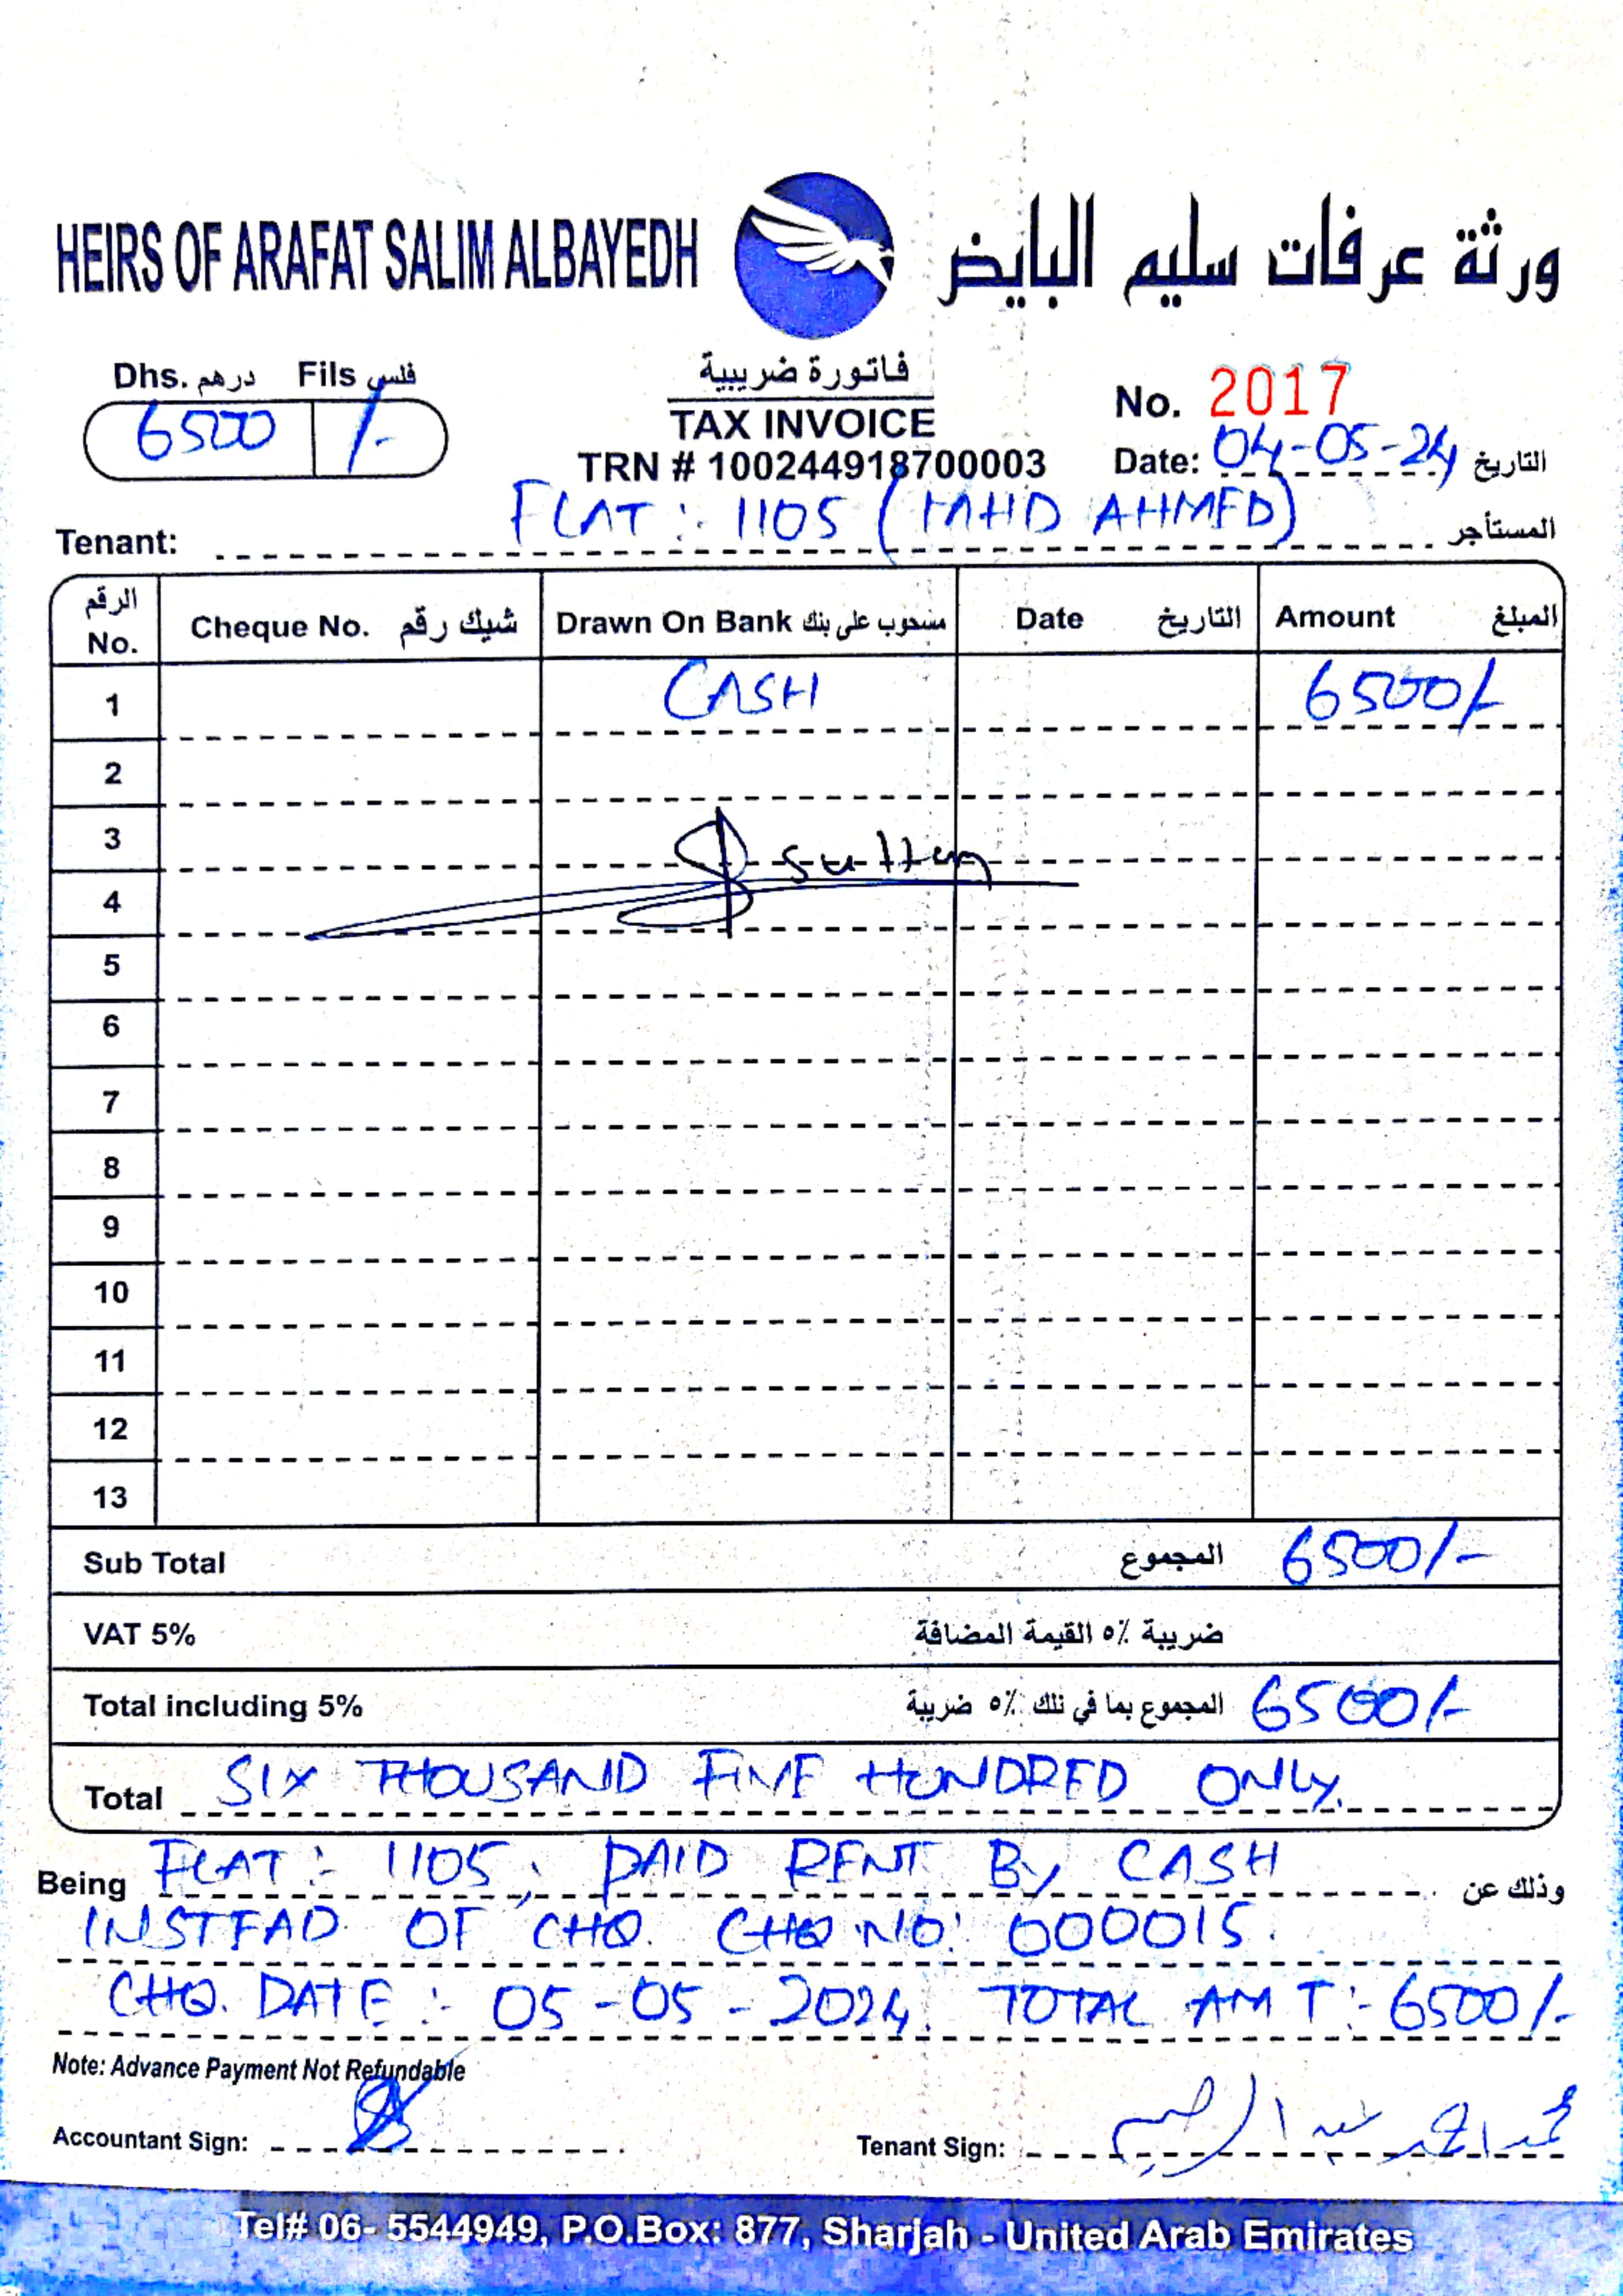 HEIRS OF ARAFAT SALIM ALBAYEDH ورثة عرفات سليم البايض
Dhs. درهم Fils فلس
6500 /-
فاتورة ضريبية
TAX INVOICE
TRN # 100244918700003
No. 2017
Date: 04-05-24 التاريخ
Tenant: FLAT:- 1105 (FAHD AHMED) المستأجر
الرقم No. Cheque No. شيك رقم Drawn On Bank مسحوب على بنك Date التاريخ Amount المبلغ
1 CASH 6500/-
2
3 Sultan
4
5
6
7
8
9
10
11
12
13
Sub Total المجموع 6500/-
VAT 5% ضريبة ٥٪ القيمة المضافة
Total including 5% المجموع بما في ذلك ٥٪ ضريبة 6500/-
Total SIX THOUSAND FIVE HUNDRED ONLY.
Being FLAT:- 1105, PAID RENT By CASH وذلك عن
INSTEAD OF CHQ. CHQ NO: 000015.
CHQ. DATE:- 05-05-2024. TOTAL AMT:- 6500/-
Note: Advance Payment Not Refundable
Accountant Sign:
Tenant Sign:
Tel# 06- 5544949, P.O.Box: 877, Sharjah - United Arab Emirates